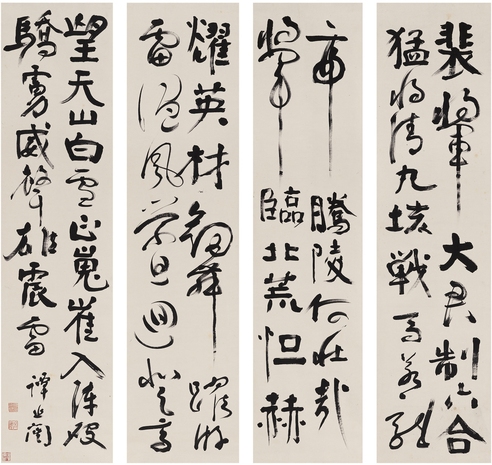 裴將軍 大君制六合
猛将清九垓戰馬若龍
虎騰陵何壯哉
將軍臨北荒恒赫
耀英材劍舞躍游
雷隨風縈且迴登高
望天山白雪正嵬崔入陣破
驕虜威聲雄震雷
譚延闓